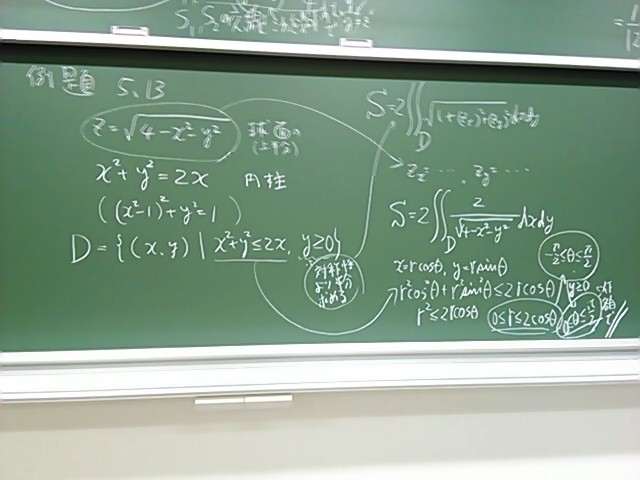 例題 5.13
z=√4-x²-y² 球面の(上半分)
x²+y²=2x 円柱
((x²-1)²+y²=1)
D={(x,y)|x²+y²≤2x, y≥0}
対称性より半分求める
S=2∬_D √(1+(z_x)²+(z_y)²)dxdy
z_x=…, z_y=…
S=2∬_D 2/√4-x²-y² dxdy
x=rcosθ, y=rsinθ
-π/2≤θ≤π/2
r²cos²θ+r²sin²θ≤2rcosθ
y≥0
r²≤2rcosθ
0≤r≤2cosθ
0≤θ≤π/2